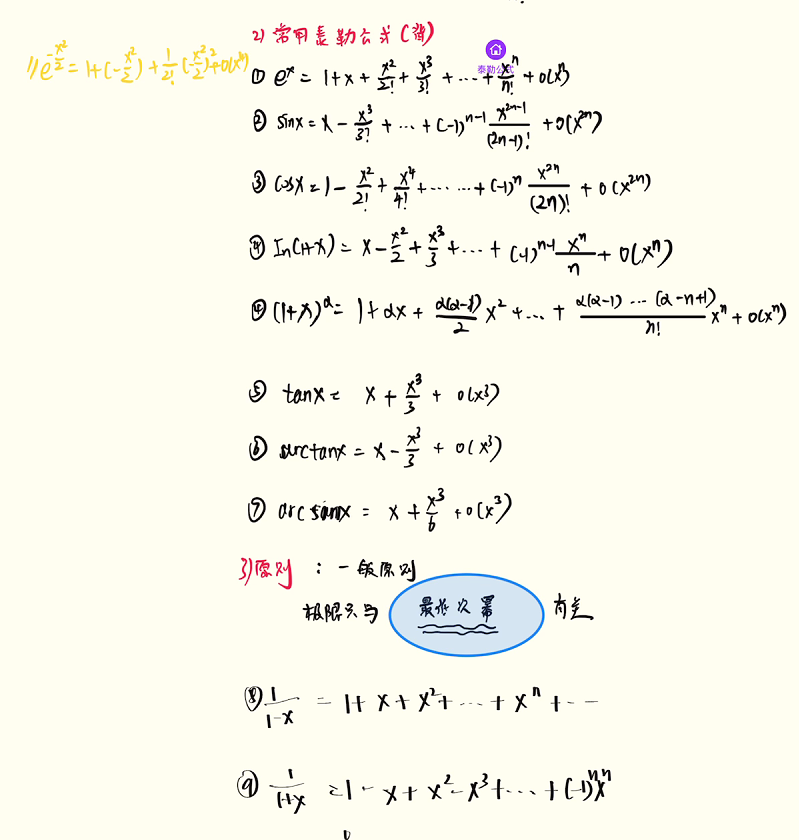 2) 常用泰勒公式(背)
泰勒公式
11 e^{-\frac{x^2}{2}} = 1+(-\frac{x^2}{2})+\frac{1}{2!}(\frac{x^2}{2})^2+o(x^4)
① e^x = 1+x+\frac{x^2}{2!}+\frac{x^3}{3!}+…+\frac{x^n}{n!}+o(x^n)
② sinx = x-\frac{x^3}{3!}+…+(-1)^{n-1}\frac{x^{2n-1}}{(2n-1)!}+o(x^{2n})
③ cosx = 1-\frac{x^2}{2!}+\frac{x^4}{4!}+……+(-1)^n\frac{x^{2n}}{(2n)!}+o(x^{2n})
④ In(1+x) = x-\frac{x^2}{2}+\frac{x^3}{3}+…+(-1)^{n-1}\frac{x^n}{n}+o(x^n)
④ (1+x)^α = 1+αx+\frac{α(α-1)}{2}x^2+…+\frac{α(α-1)…(α-n+1)}{n!}x^n+o(x^n)
⑤ tanx = x+\frac{x^3}{3}+o(x^3)
⑥ arctanx = x-\frac{x^3}{3}+o(x^3)
⑦ arcsinx = x+\frac{x^3}{6}+o(x^3)
3)原则 : 一般原则
极限只与 最低次幂 有关
⑧ \frac{1}{1-x} = 1+x+x^2+…+x^n+…
⑨ \frac{1}{1+x} = 1-x+x^2-x^3+…+(-1)^n x^n